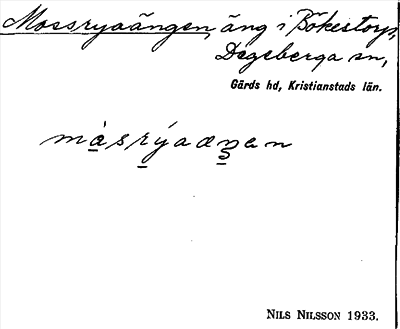 Mossryaängen, äng i Bökestorp,
Degeberga sn,
Gärds hd, Kristianstads län.
màsrýaæŋen
NILS NILSSON 1933.